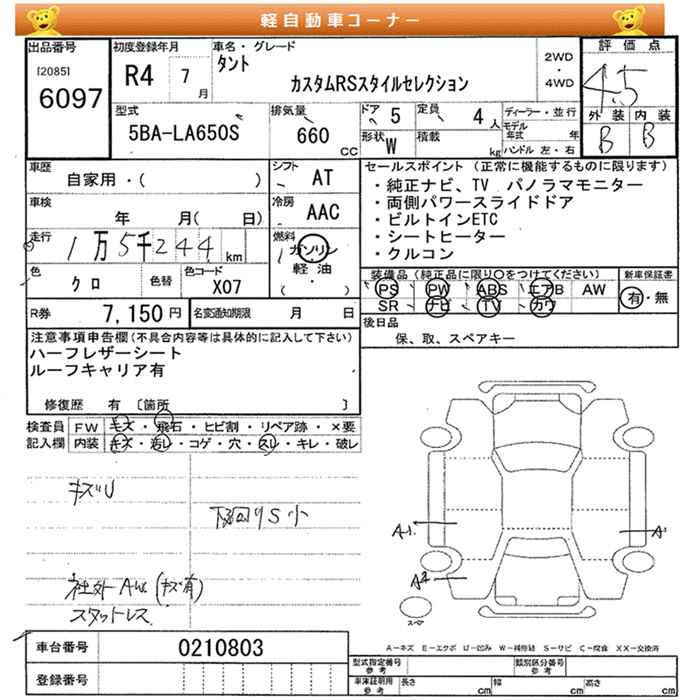 軽自動車コーナー
出品番号 [2085] 6097
初度登録年月 R4 7月
車名・グレード タント カスタムRSスタイルセレクション
2WD・4WD
評価点 4.5
外装 内装
B B
型式 5BA-LA650S
排気量 660 CC
ドア 5 定員 4人
形状 W 積載 kg
ディーラー・並行
モデル年式 年
ハンドル 左・右
車歴 自家用・( )
シフト AT
車検 年 月( 日)
冷房 AAC
走行 1万5千244km
燃料 ガソリン
軽油
( ・ )
色 クロ 色替 色コード X07
R券 7,150円 名変通知期限 月 日
セールスポイント(正常に機能するものに限ります)
・純正ナビ、TV パノラマモニター
・両側パワースライドドア
・ビルトインETC
・シートヒーター
・クルコン
装備品(純正品に限り○をつけてください) 新車保証書
PS PW ABS エアB AW 有・無
SR ナビ TV カワ
後日品
保、取、スペアキー
注意事項申告欄(不具合内容等は具体的に記入して下さい)
ハーフレザーシート
ルーフキャリア有
修復歴 有 〔箇所 〕
検査員 FW キズ・飛石・ヒビ割・リペア跡・×要
記入欄 内装 キズ・汚レ・コゲ・穴・スレ・キレ・破レ
キズU
下回りS小
社外AW(キズ有)
スタットレス
A1 A1
A2
スペア
A-キズ E-エクボ U-凹み W-補修跡 S-サビ C-腐食 XX-交換済
車台番号 0210803
登録番号
型式指定番号 参考 類別区分番号 参考
車庫証明用 参考 長さ cm 幅 cm 高さ cm